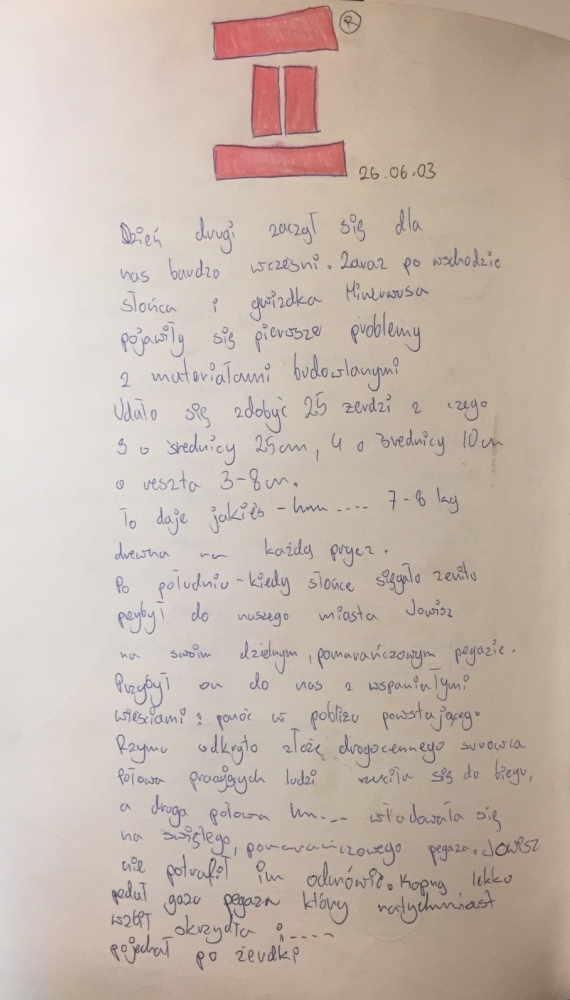 R
26.06.03
Dzień drugi zaczął się dla
nas bardzo wcześni. Zaraz po wschodzie
słońca i gwizdka Minerwusa
pojawiły się pierwsze problemy
z materiałami budowlanymi
Udało się zdobyć 25 żerdzi z czego
5 o średnicy 25cm, 4 o średnicy 10cm
a reszta 3-8cm.
To daje jakieś - hmm .... 7-8 lag
drewna na każdą prycz.
Po południu - kiedy słońce sięgało zenitu
przybył do naszego miasta Jowisz
na swoim dzielnym, pomarańczowym pegazie.
Przybył on do nas z wspaniałymi
wieściami: ponoć w pobliżu powstającego
Rzymu odkryto złożę drogocennego surowca
Połowa pracujących ludzi rzuciła się do biegu,
a druga połowa hm... władowała się
na świętego, pomarańczowego pegaza. Jowisz
nie potrafił im odmówić. Kopną lekko
pedał gazu pegaza który natychmiast
wzbił skrzydła i....
pojechał po żerdki